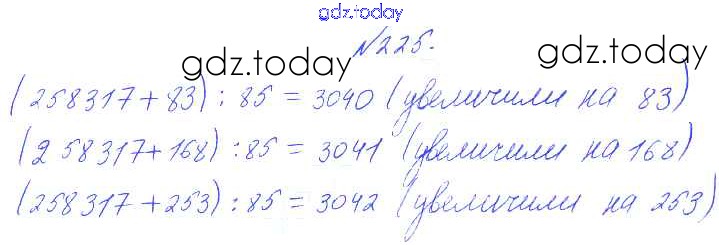 gdz.today
№225.
gdz.today gdz.today
(258317+83) : 85 = 3040 (увеличили на 83)
(258317+168) : 85 = 3041 (увеличили на 168)
(258317+253) : 85 = 3042 (увеличили на 253)